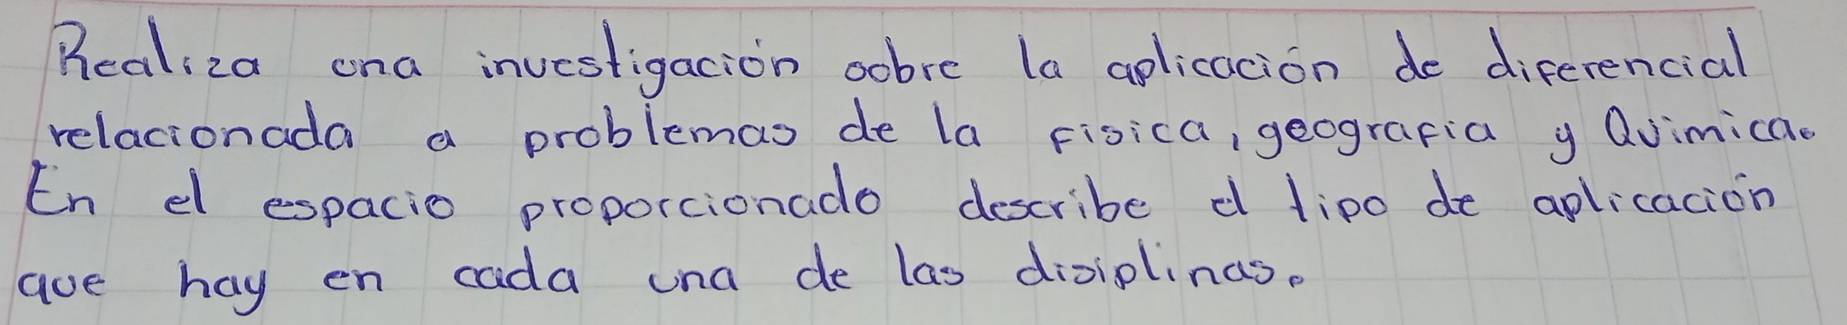 Realiza una investigación sobre la aplicación de diferencial
relacionada a problemas de la física, geografía y Química.
En el espacio proporcionado describe el tipo de aplicación
que hay en cada una de las disiplinas.